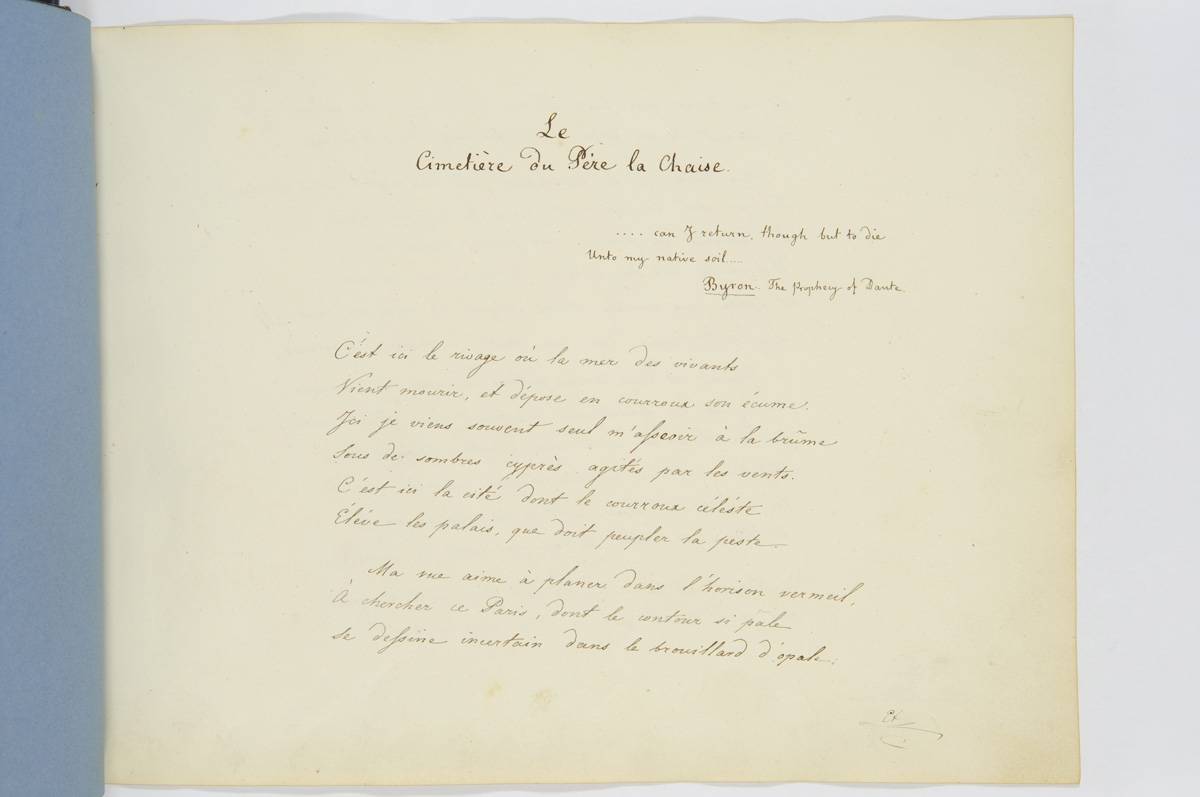 Le
Cimetière du Père la Chaise.
.... can I return, though but to die
Unto my native soil....
Byron. The Prophecy of Dante
C'est ici le rivage où la mer des vivants
Vient mourir, et dépose en courroux son écume.
Ici je viens souvent seul m'asseoir à la brûme
Sous de sombres cyprès agités par les vents.
C'est ici la cité dont le courroux céléste
Élève les palais, que doit peupler la peste.
Ma vue aime à planer dans l'horison vermeil,
À chercher ce Paris, dont le contour si pâle
Se dessine incertain dans le brouillard d'opale;
Et